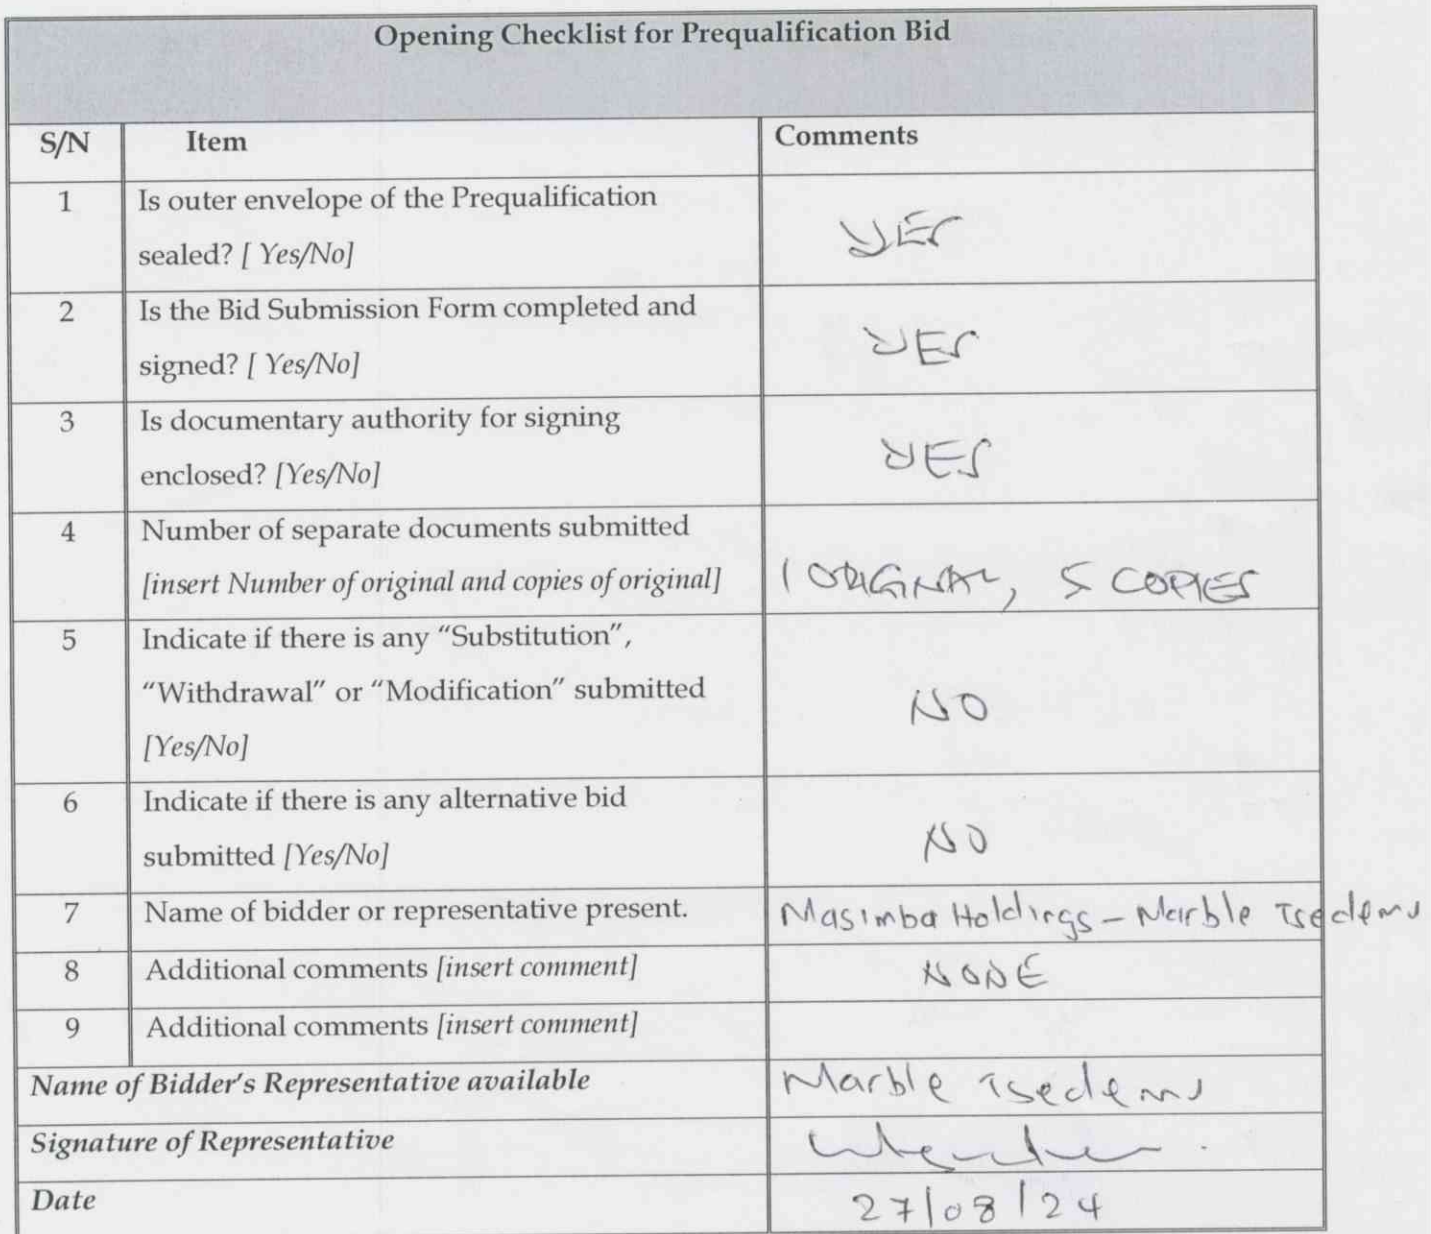 Opening Checklist for Prequalification Bid
S/N Item Comments
1 Is outer envelope of the Prequalification
sealed? [ Yes/No] YES
2 Is the Bid Submission Form completed and
signed? [ Yes/No] YES
3 Is documentary authority for signing
enclosed? [Yes/No] YES
4 Number of separate documents submitted
[insert Number of original and copies of original] 1 ORIGINAL, 5 COPIES
5 Indicate if there is any “Substitution”,
“Withdrawal” or “Modification” submitted NO
[Yes/No]
6 Indicate if there is any alternative bid
submitted [Yes/No] NO
7 Name of bidder or representative present. Masimba Holdings – Marble
8 Additional comments [insert comment] NONE
9 Additional comments [insert comment]
Name of Bidder's Representative available Marble
Signature of Representative
Date 27/08/24